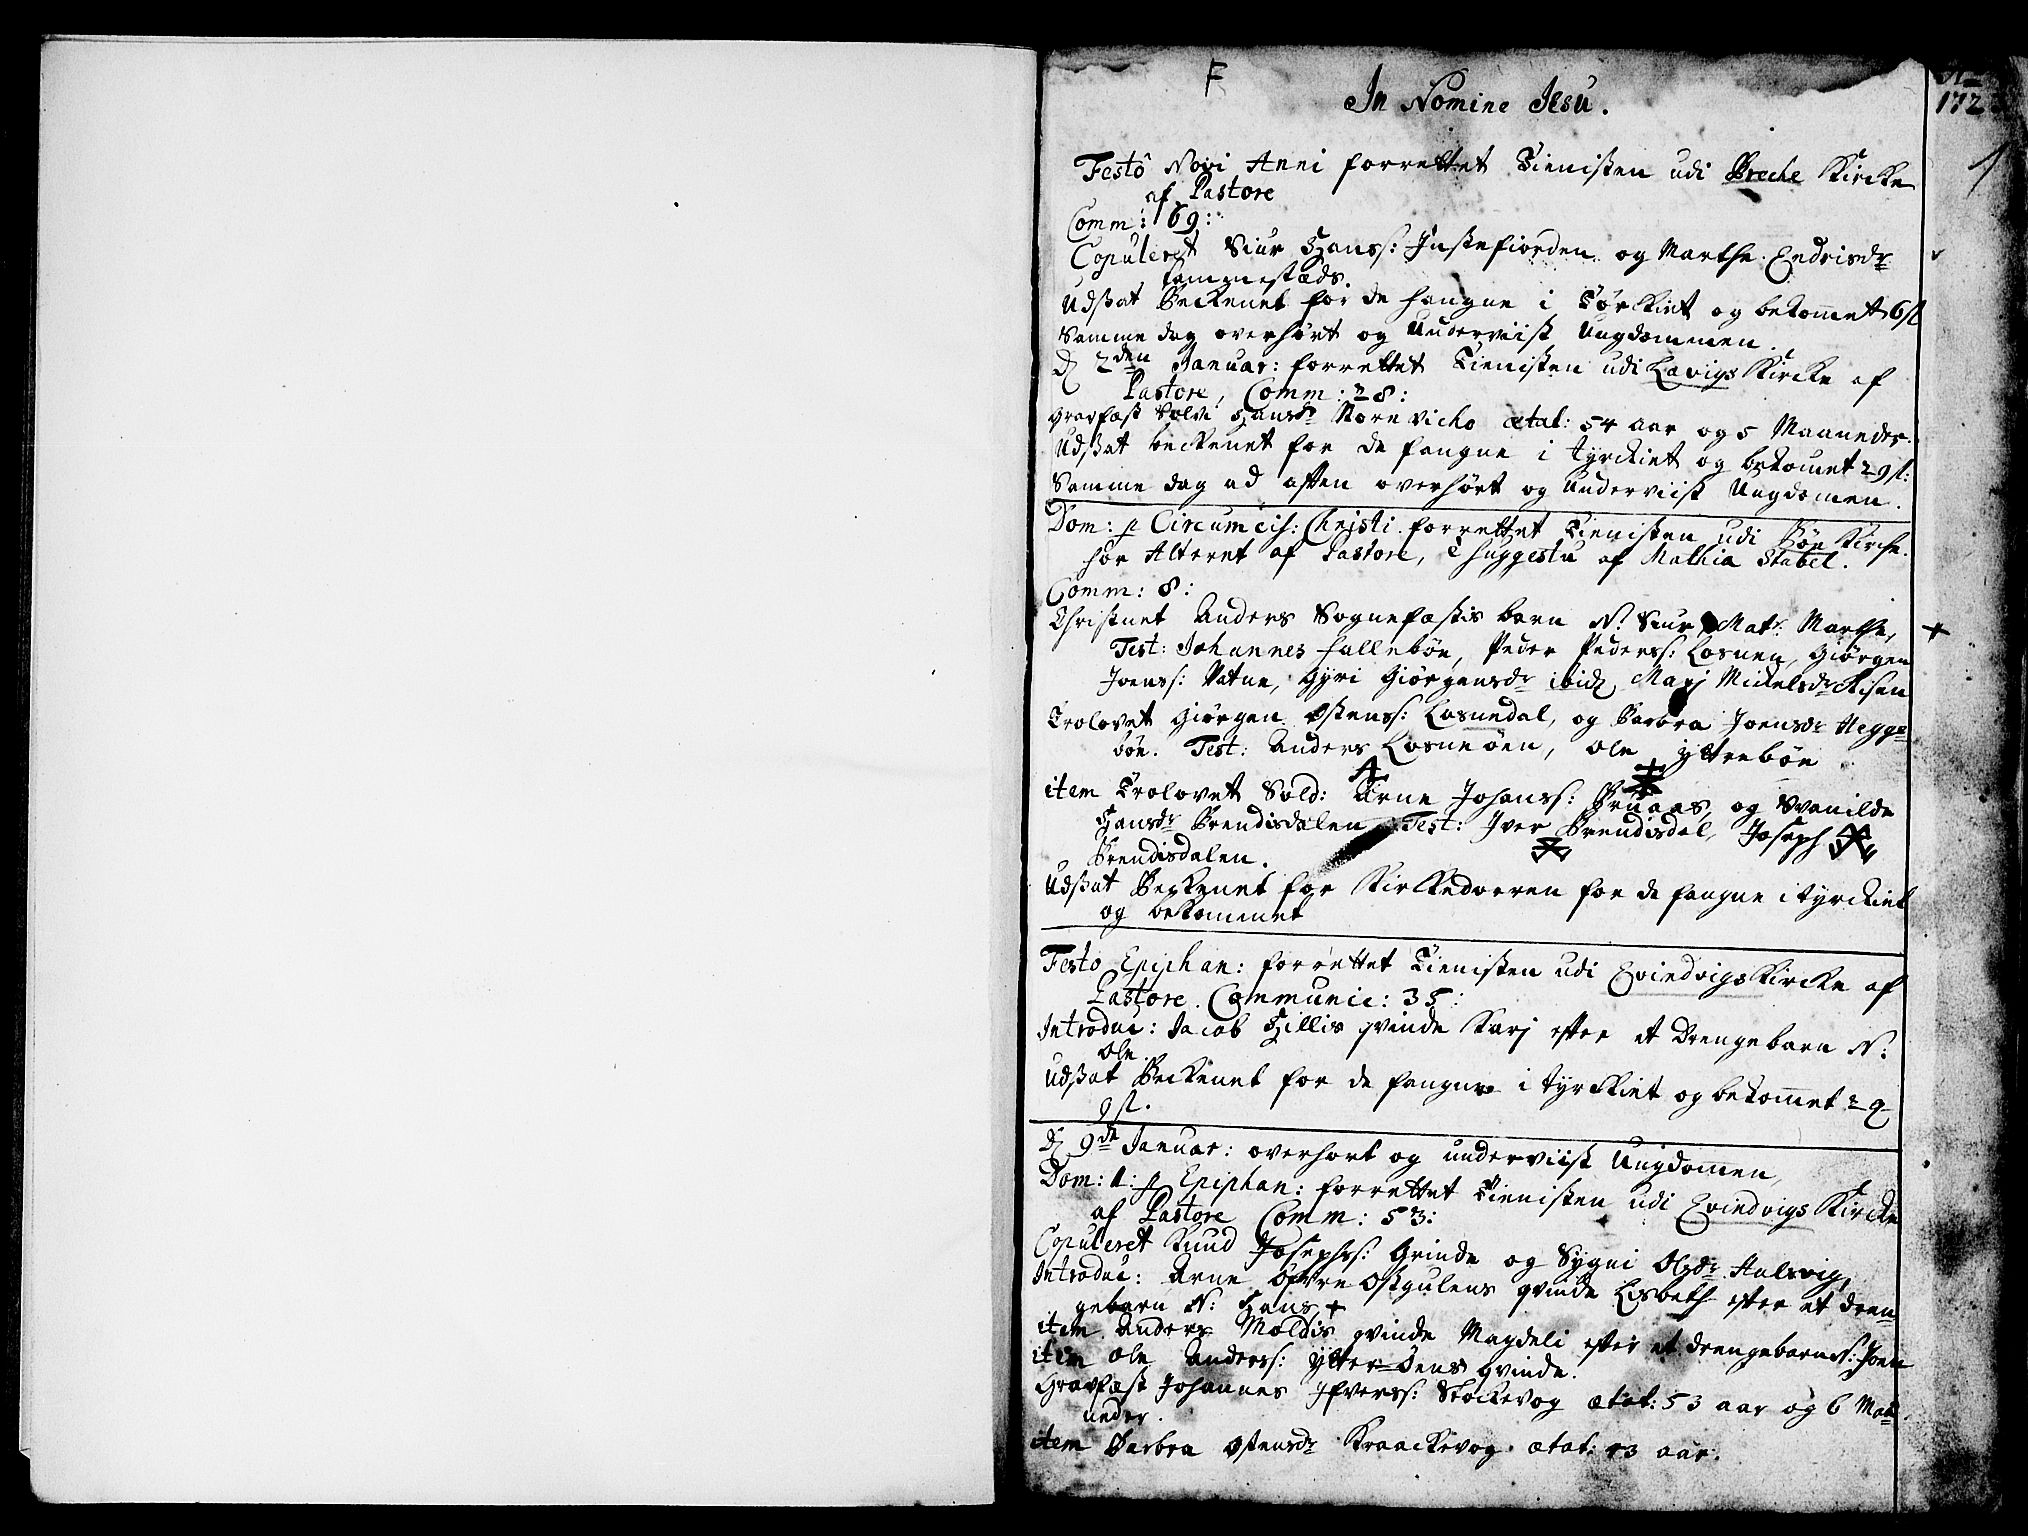 F
In Nomine Jesu.
172
1
Festo Novi Anni forrettet Tienisten udi Breche Kircke
af Pastore
Comm: 69:
Copuleret Siur Hanss: Instefiorden og Marthe Endrisdr
sammestæds.
Udsat Beckenet for de fangne i Tørkiet og bekommet 6 sl
Samme dag overhørt og Underviist Ungdommen.
D 2den Januar: forrettet Tienisten udi Lavigs Kircke af
Pastore, Comm: 28:
gravfæst Hansdr Nornvicho ætat: 54 aar og 5 Maaneder.
Udsat beckenet for de fangne i tyrckiet og bekomet 29 sl:
Samme dag ad aften overhørt og Underviist Ungdomen.
Dom: p Circumcis: Christi forrettet Tienisten udi Bøe Kirche
for Alteret af Pastore, e suggestu af Mathia Stabel.
Comm: 8:
Christnet Anders Sognefæstis barn N. Siur, Matr: Marthe,
Test: Johannes Fallebøe, Peder Pederss: Losnen, Giørgen
Joenss: Vatne, Gyri Giørgensdr ibid Marj Mickelsdr Risen
Trolovet Giørgen Ostenss: Losnedal, og Barbra Joensdr Hegge
bøe. Test: Anders Losneøen, Ole Yttrebøe
item Trolovet Sold: Arne Johanss: Bruaas, og Svanilde
Hansdr Brendisdalen Test: Iver Brendisdal, Joseph
Brendisdalen.
Udsat Beckenet for Kirckedoeren for de fangne i tyrckiet
og bekommet
Festo Epiphan: forrettet Tienisten udi Evindvigs Kircke af
Pastore. Communic: 35:
Introduc: Jacob Hillis qvinde Karj efter et Drengebarn N:
Ole.
Udsat Beckenet for de fangne i tyrckiet og bekomet 29
sl.
D 9de Januar: overhort og underviist Ungdomen,
Dom: 1: p Epiphan: forrettet Tienisten udi Evindvigs Kircke
af Pastore Comm: 53:
Copuleret Knud Josephss: Grinde og Sygni Olsdr Halsvig,
Introduc: Arne Øfre Ostgulens qvinde Lisbeth efter et dren
gebarn N: Hans
item Anders Moldis qvinde Magdeli efter et drengebarn N: Joen
item Ole Anderss: Ytter Øens qvinde.
Gravfæst Johannes Ifverss: Stockevog ætat: 53 aar og 6 Maa
neder.
item Barbra Ostensdr Kraackevog ætat: 13 aar.